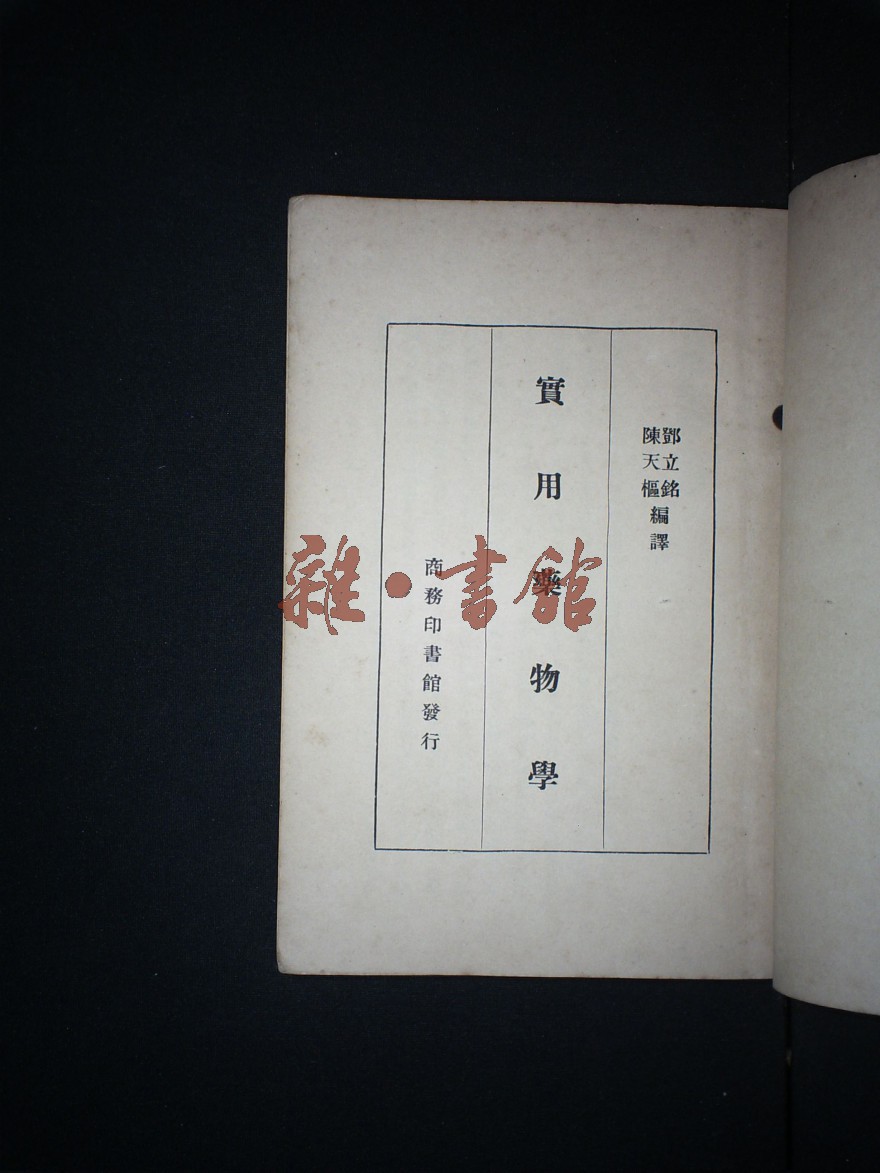 鄧立銘
陳天樞
編譯
實用藥物學
商務印書館發行
雜·書館